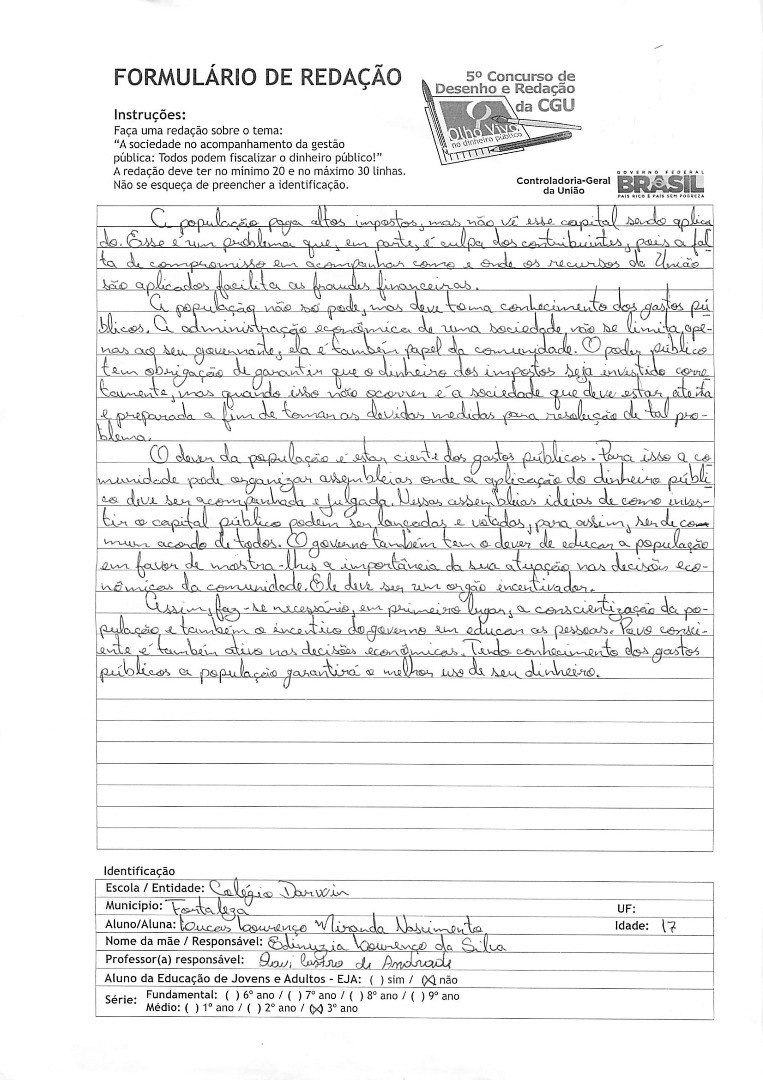 FORMULÁRIO DE REDAÇÃO
5º Concurso de
Desenho e Redação
da CGU
Olho Vivo
no dinheiro público
Instruções:
Faça uma redação sobre o tema:
"A sociedade no acompanhamento da gestão
pública: Todos podem fiscalizar o dinheiro público!"
A redação deve ter no mínimo 20 e no máximo 30 linhas.
Não se esqueça de preencher a identificação.
Controladoria-Geral
da União
GOVERNO FEDERAL
BRASIL
PAÍS RICO É PAÍS SEM POBREZA
A população paga altos impostos, mas não vê esse capital sendo aplica
do. Esse é um problema que, em parte, é culpa dos contribuintes, pois a fal
ta de compromisso em acompanhar como e onde os recursos da União
são aplicados facilita as fraudes financeiras.
A população não só pode, mas deve toma conhecimento dos gastos pú
blicos. A administração econômica de uma sociedade, não se limita ape-
nas ao seu governante, ela é também papel da comunidade. O poder público
tem obrigação de garantir que o dinheiro dos impostos seja investido corre
tamente, mas quando isso não ocorrer é a sociedade que deve estar atenta
e preparada a fim de tomar as devidas medidas para resolução de tal pro-
blema.
O dever da população é estar ciente dos gastos públicos. Para isso a co
munidade pode organizar assembleias onde a aplicação do dinheiro públi
co deve ser acompanhada e julgada. Nessas assembleias ideias de como inves-
tir o capital público podem ser lançadas e votadas, para assim, ser de co-
mum acordo de todos. O governo também tem o dever de educar a população
em favor de mostra-lhes a importância da sua atuação nas decisões eco-
nômicas da comunidade. Ele deve ser um orgão incentivador.
Assim, faz-se necessário, em primeiro lugar, a conscientização da po-
pulação e também o incentivo do governo em educar as pessoas. Povo consci-
ente é também ativo nas decisões econômicas. Tendo conhecimento dos gastos
públicos a população garantirá o melhor uso de seu dinheiro.
Identificação
Escola / Entidade: Colégio Darwin
Município: Fortaleza UF:
Aluno/Aluna: Lucas Lourenço Miranda Nascimento Idade: 17
Nome da mãe / Responsável: Edinuzia Lourenço da Silva
Professor(a) responsável: Davi Castro de Andrade
Aluno da Educação de Jovens e Adultos - EJA: ( ) sim / (X) não
Série: Fundamental: ( ) 6º ano / ( ) 7º ano / ( ) 8º ano / ( ) 9º ano
Médio: ( ) 1º ano / ( ) 2º ano / (X) 3º ano